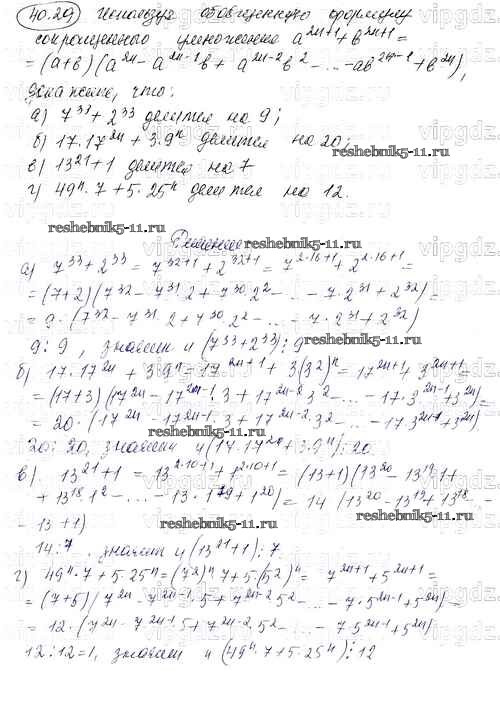 40.29 Используя обобщенную формулу
сокращенного умножения a²ⁿ⁺¹+b²ⁿ⁺¹=
=(a+b)(a²ⁿ-a²ⁿ⁻¹b+a²ⁿ⁻²b²-...-ab²ⁿ⁻¹+b²ⁿ),
докажите, что:
а) 7³³+2³³ делится на 9;
б) 17·17²ⁿ+3·9ⁿ делится на 20;
в) 13²¹+1 делится на 7
г) 49ⁿ·7+5·25ⁿ делится на 12.
reshebnik5-11.ru
reshebnik5-11.ru
Решение
а) 7³³+2³³=7³²⁺¹+2³²⁺¹=7²·¹⁶⁺¹+2²·¹⁶⁺¹=
=(7+2)(7³²-7³¹2+7³⁰2²-...-7·2³¹+2³²)=
=9·(7³²-7³¹2+7³⁰2²-...-7·2³¹+2³²)
9⋮9, значит и (7³³+2³³)⋮9
reshebnik5-11.ru
б) 17·17²ⁿ+3·9ⁿ=17²ⁿ⁺¹+3(3²)ⁿ=17²ⁿ⁺¹+3²ⁿ⁺¹=
=(17+3)(17²ⁿ-17²ⁿ⁻¹·3+17²ⁿ⁻²3²-...-17·3²ⁿ⁻¹+3²ⁿ)=
=20·(17²ⁿ-17²ⁿ⁻¹·3+17²ⁿ⁻²·3²-...-17·3²ⁿ⁻¹+3²ⁿ)
reshebnik5-11.ru
20⋮20, значит и (17·17²ⁿ+3·9ⁿ)⋮20
в). 13²¹+1=13²·¹⁰⁺¹+1²·¹⁰⁺¹=(13+1)(13²⁰-13¹⁹1+
+13¹⁸1²-...-13·1¹⁹+1²⁰)=14(13²⁰-13¹⁹+13¹⁸-
reshebnik5-11.ru
reshebnik5-11.ru
-13+1)
14⋮7, значит и (13²¹+1)⋮7
г) 49ⁿ·7+5·25ⁿ=(7²)ⁿ7+5·(5²)ⁿ=7²ⁿ⁺¹+5²ⁿ⁺¹=
=(7+5)(7²ⁿ-7²ⁿ⁻¹·5+7²ⁿ⁻²5²-...-7·5²ⁿ⁻¹+5²ⁿ)=
=12·(7²ⁿ-7²ⁿ⁻¹5+7²ⁿ⁻²5²-...-7·5²ⁿ⁻¹+5²ⁿ)
12:12=1, значит и (49ⁿ·7+5·25ⁿ)⋮12